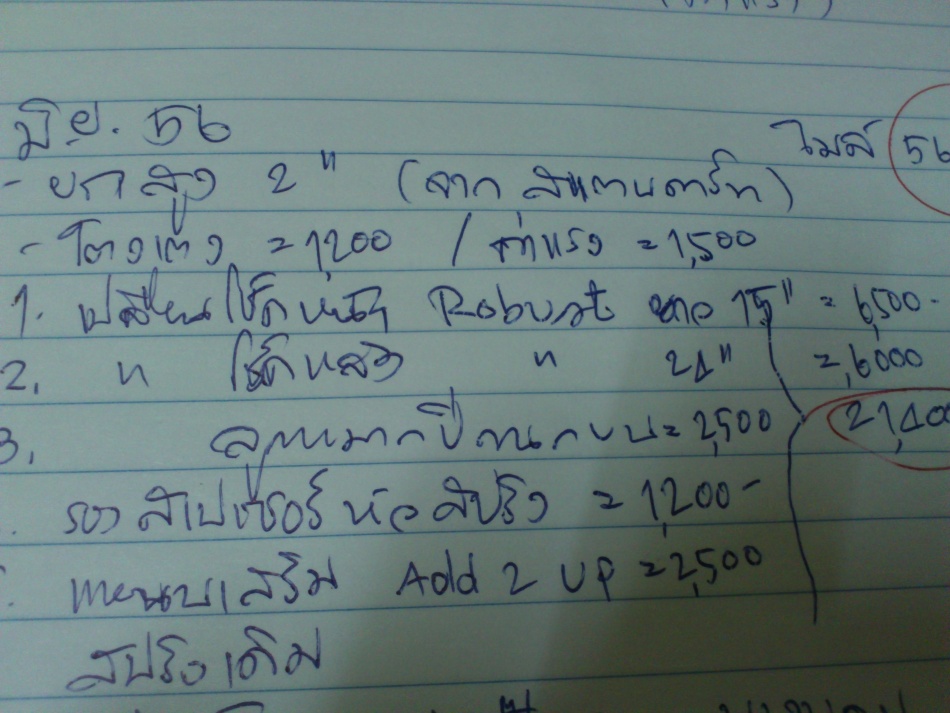 มิ.ย. 56
ไมล์ 56
- ยกสูง 2" (จาก สแตนดาร์ท)
- โตงเตง = 1,200 / ค่าแรง = 1,500
1. เปลี่ยนโช๊คหน้า Robust ยาว 15" = 6,500-
2. " โช๊คหลัง " 21" = 6,000
3. ลูกหมากปีกนกบน = 2,500 21,400
รองสเปเซอร์หัวสปริง = 1,200-
แหนบเสริม Add 2 UP = 2,500
สปริงเดิม